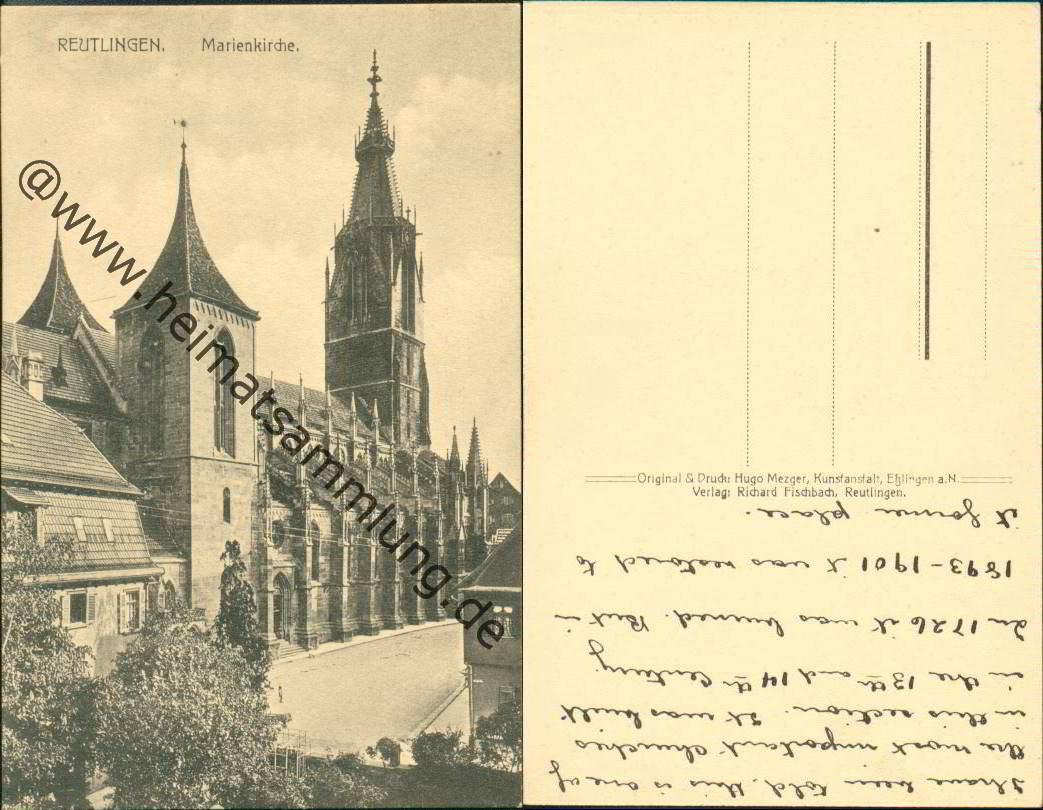 REUTLINGEN. Marienkirche.
@www.heimatsammlung.de
Original & Druck: Hugo Mezger, Kunstanstalt, Eßlingen a.N.
Verlag: Richard Fischbach, Reutlingen.
I have been told, this is one of
the most important churches
in this section. It was built
in the 13th and 14th Century.
In 1726 it was burned. But in
1893-1901 it was restored to
it former place.